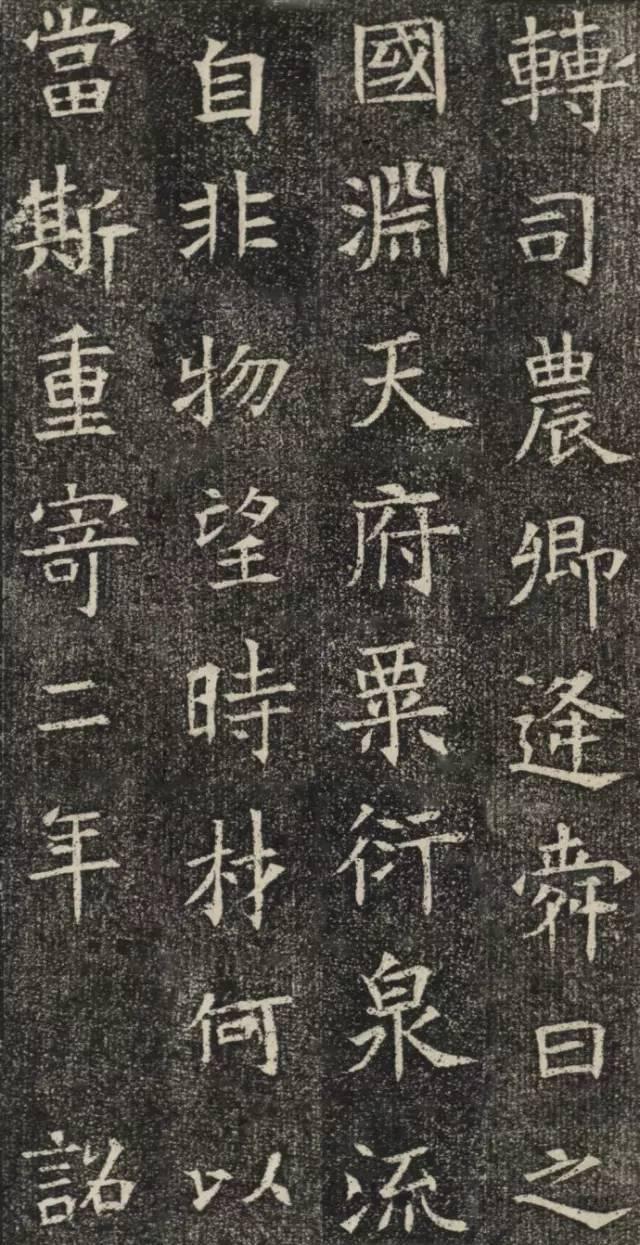 轉司農卿逢舜曰之
國淵天府粟衍泉流
自非物望時材何以
當斯重寄二年 詔